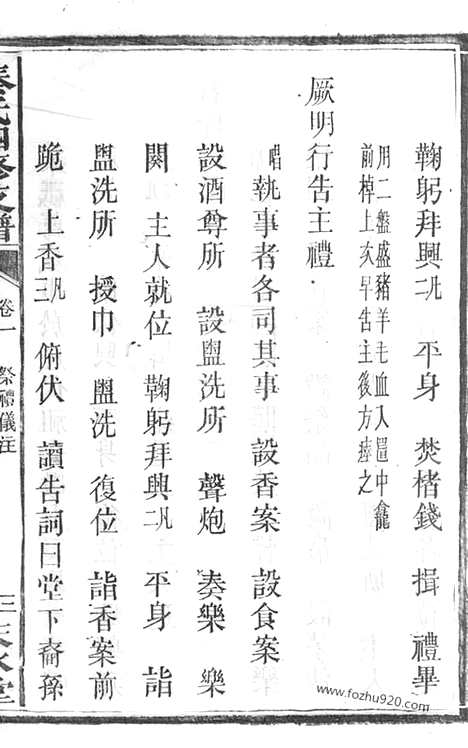 鞠躬拜興凡二　平身　焚楮錢　揖　禮畢
用二盤盛豬羊毛血入置中龕
前棹上次早告主後方瘞之
厥明行告主禮
唱執事者各司其事　設香案　設食案
設酒尊所　設盥洗所　聲炮　奏樂　樂
闋　主人就位　鞠躬拜興凡二　平身　詣
盥洗所　授巾　盥洗　復位　詣香案前
跪　上香凡三　俯伏　讀告詞曰堂下裔孫
氏四修支譜　卷一　祭禮儀注　三
www.fozhu920.com